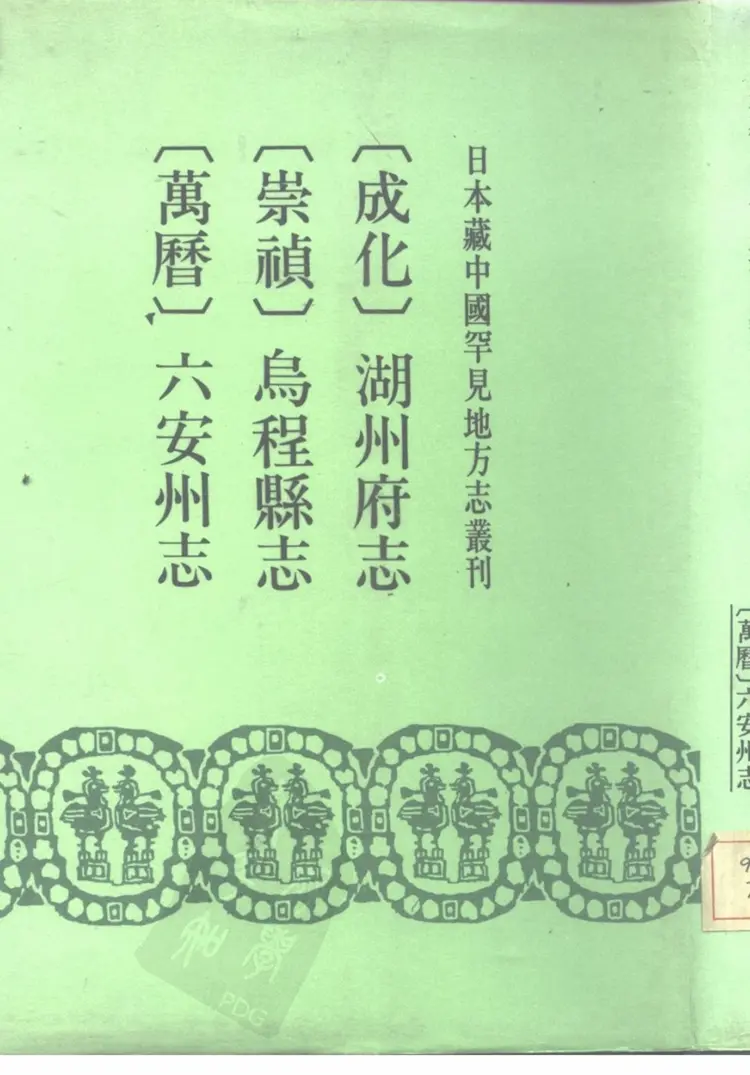 日本藏中國罕見地方志叢刊
〔成化〕湖州府志
〔崇禎〕烏程縣志
〔萬曆〕六安州志
〔萬曆〕六安州志
PDG